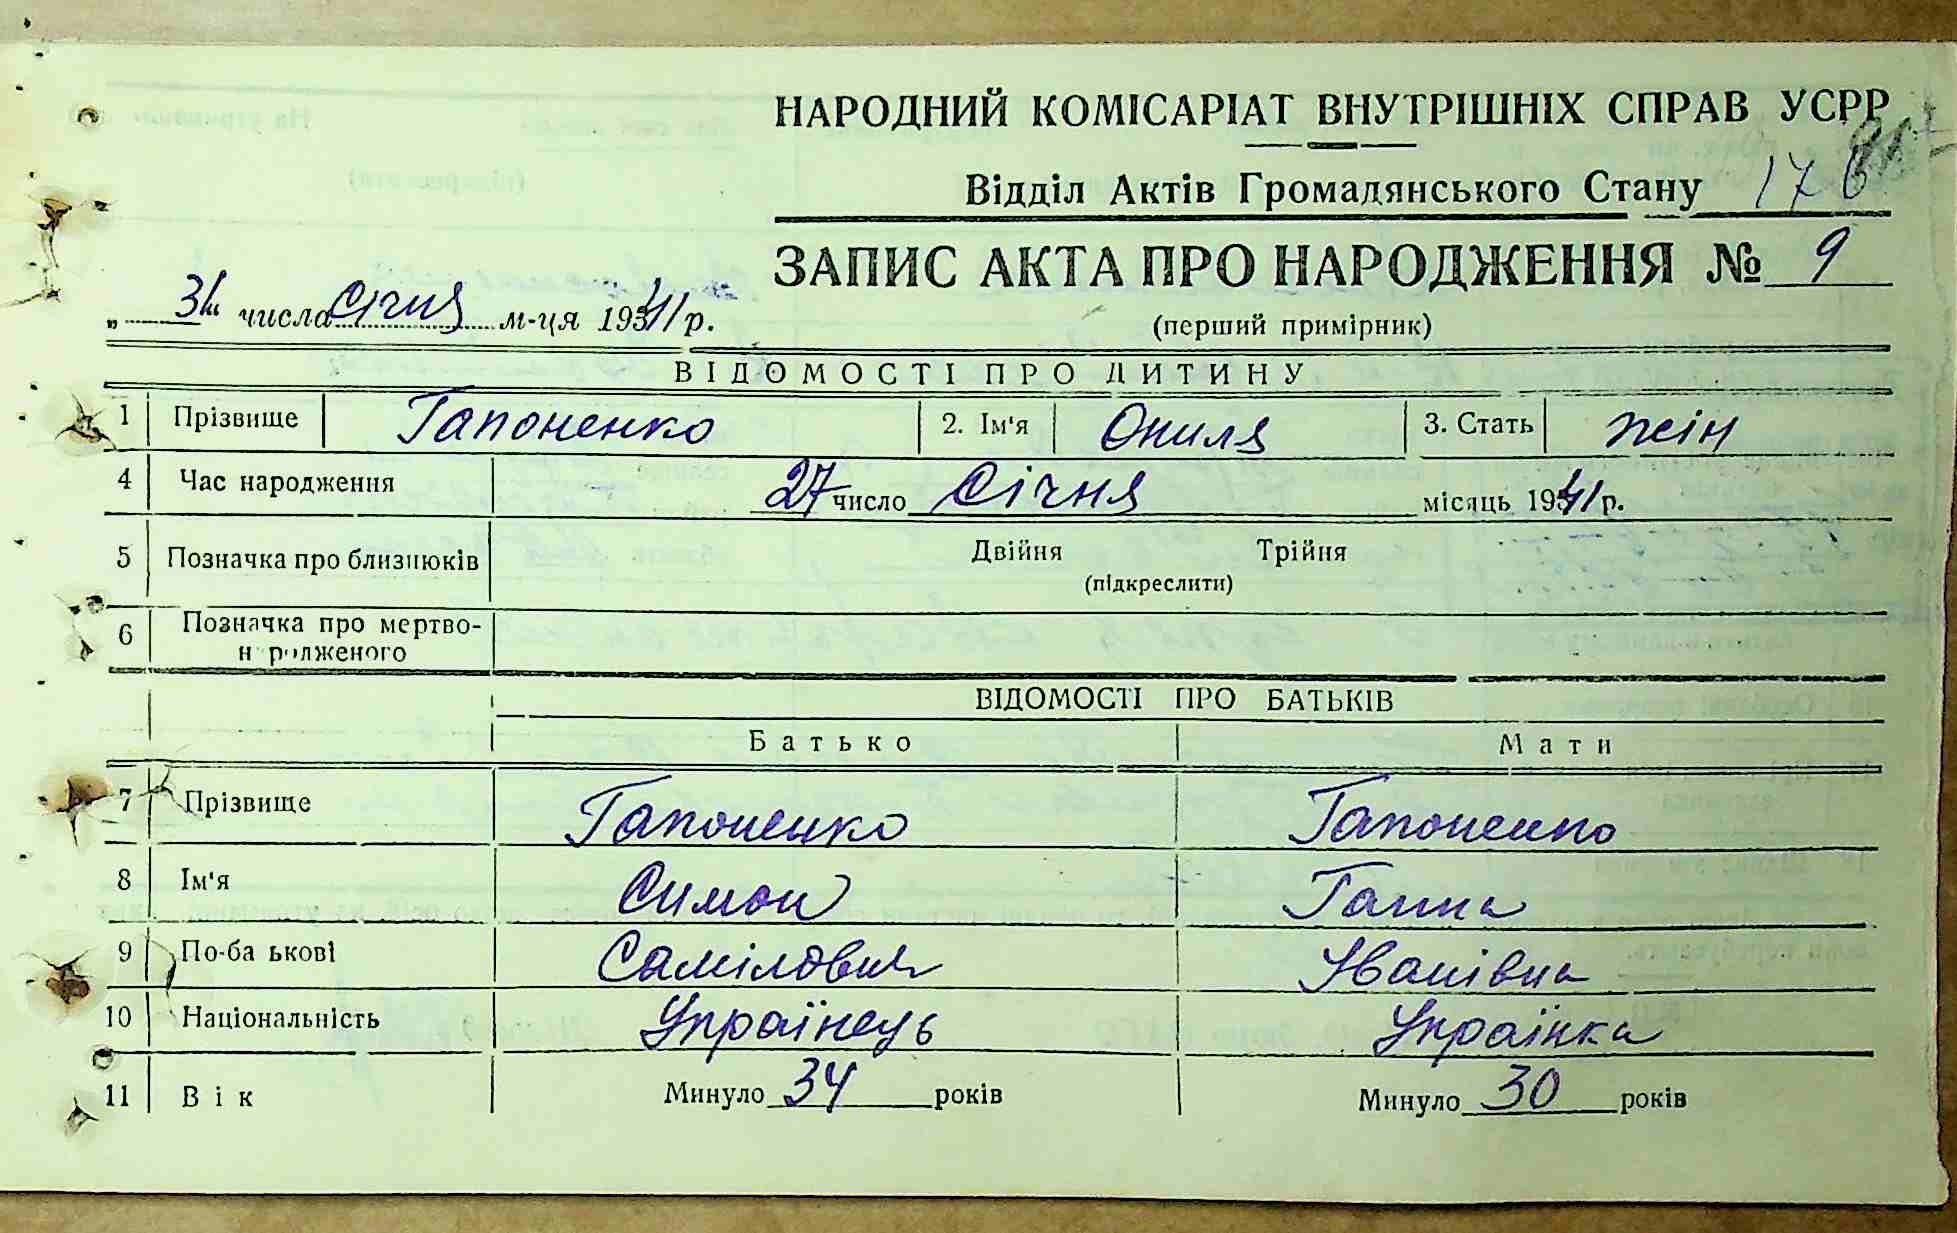 НАРОДНИЙ КОМІСАРІАТ ВНУТРІШНІХ СПРАВ УСРР
Відділ Актів Громадянського Стану 17
ЗАПИС АКТА ПРО НАРОДЖЕННЯ № 9
„ 31 числа січня м-ця 1941 р.
(перший примірник)
ВІДОМОСТІ ПРО ДИТИНУ
1 Прізвище Гапоненко 2. Ім'я Ониля 3. Стать жін
4 Час народження 27 число Січня місяць 1941 р.
5 Позначка про близнюків Двійня Трійня
(підкреслити)
6 Позначка про мертво-
н родженого
ВІДОМОСТІ ПРО БАТЬКІВ
Батько Мати
7 Прізвище Гапоненко Гапоненко
8 Ім'я Симон Ганна
9 По-ба ькові Самілович Іванівна
10 Національність Українець Українка
11 Вік Минуло 34 років Минуло 30 років